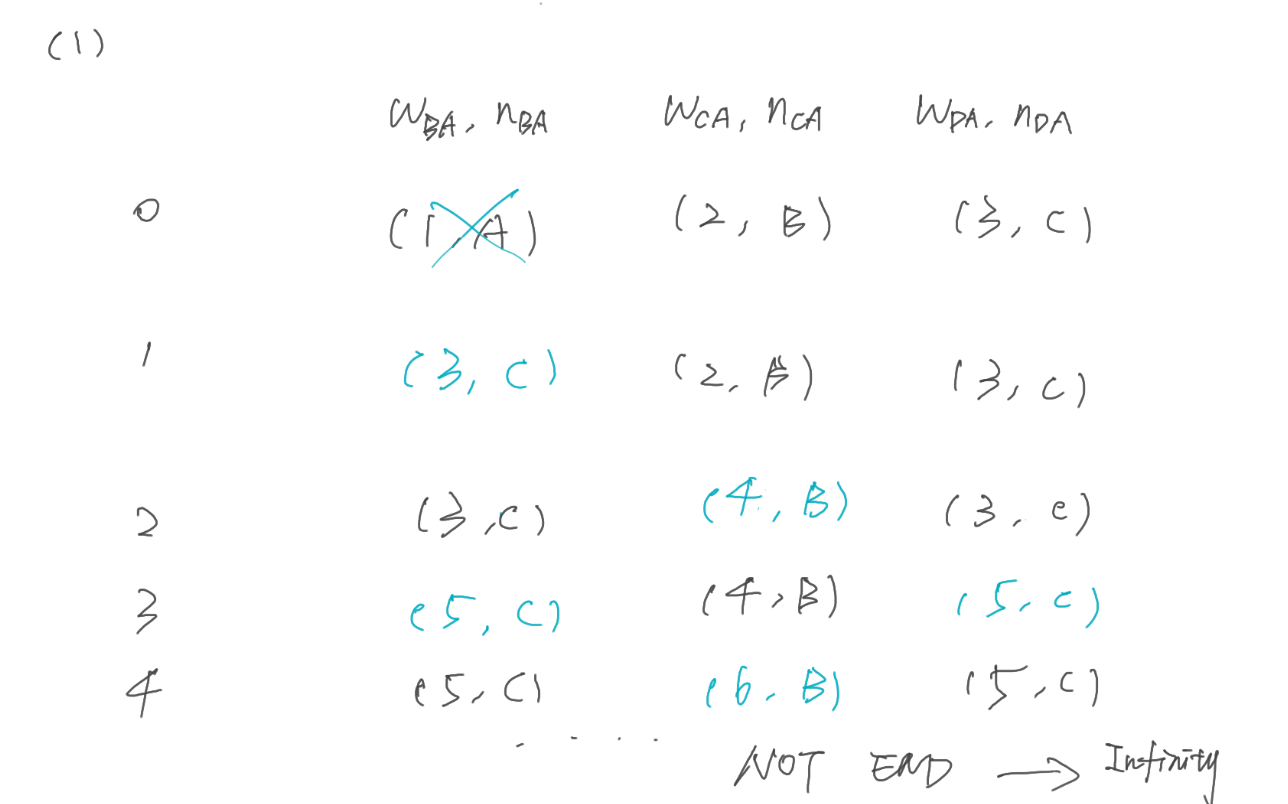 (1)
W_BA, n_BA W_CA, n_CA W_DA, n_DA
0 (1, A) (2, B) (3, C)
1 (3, C) (2, B) (3, C)
2 (3, C) (4, B) (3, C)
3 (5, C) (4, B) (5, C)
4 (5, C) (6, B) (5, C)
. . . .
NOT END → Infinity